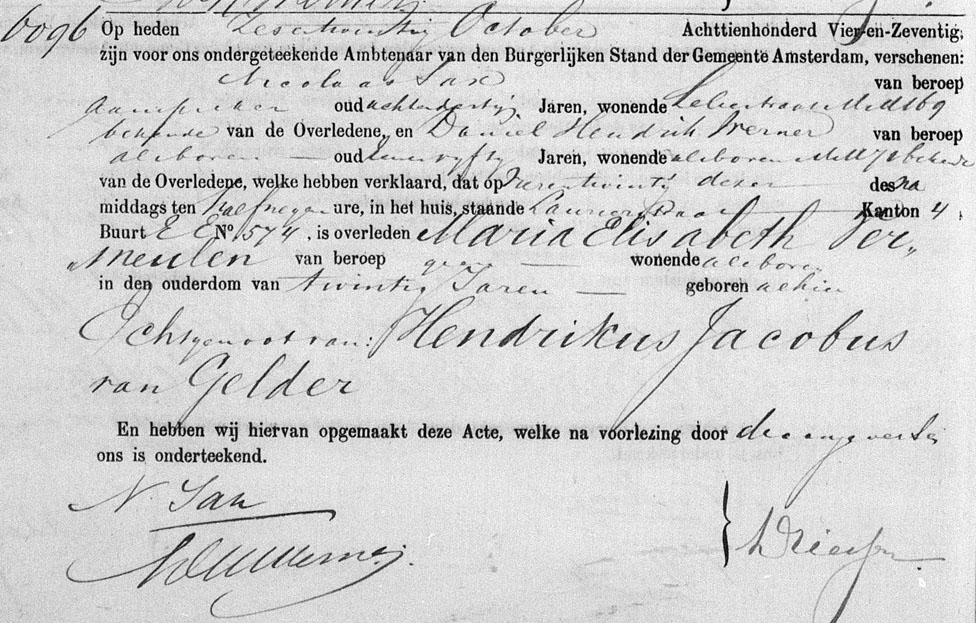 6096 Op heden Zesentwintig October Achttienhonderd Vier-en-Zeventig,
zijn voor ons ondergeteekende Ambtenaar van den Burgerlijken Stand der Gemeente Amsterdam, verschenen:
Nicolaas van beroep
aanspreker oud achtendertig Jaren, wonende
bekende van de Overledene, en Daniel Hendrik Werner van beroep
als boven oud Jaren, wonende als boven bekende
van de Overledene, welke hebben verklaard, dat op dezer des na
middags ten half negen ure, in het huis, staande Laurierstraat Kanton 4,
Buurt E E No. 574, is overleden Maria Elisabeth Ver„
„meulen van beroep geene wonende als boven
in den ouderdom van twintig Jaren geboren alhier
Echtgenoot van: Hendrikus Jacobus
van Gelder
En hebben wij hiervan opgemaakt deze Acte, welke na voorlezing door de aangevers en
ons is onderteekend.